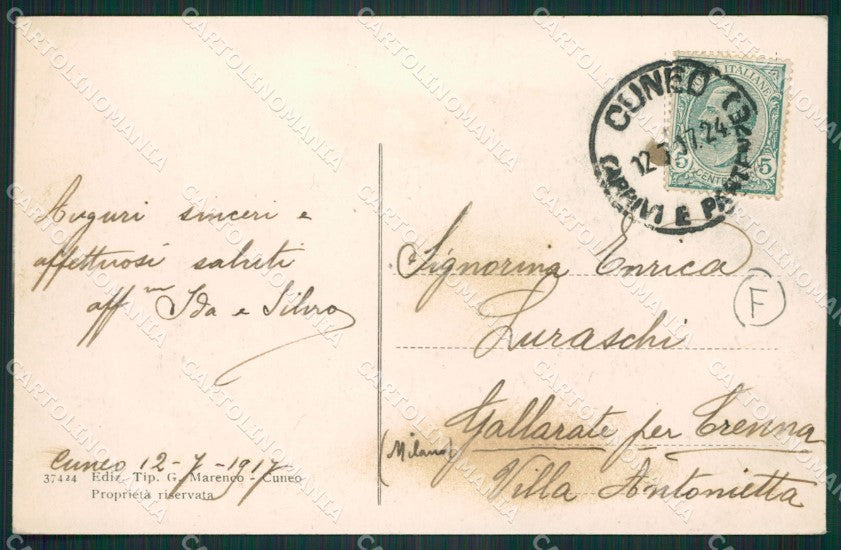 Auguri sinceri e
affettuosi saluti
aff.mi Ida e Silvio
Cuneo 12-7-1917
37424 Ediz. Tip. G. Marenco - Cuneo
Proprietà riservata
CUNEO
ARRIVI E PARTENZE
POSTE ITALIANE
5 CENT 5
Signorina Enrica
Luraschi
Gallarate per Crenna
(Milano)
Villa Antonietta
F
CARTOLINOMANIA